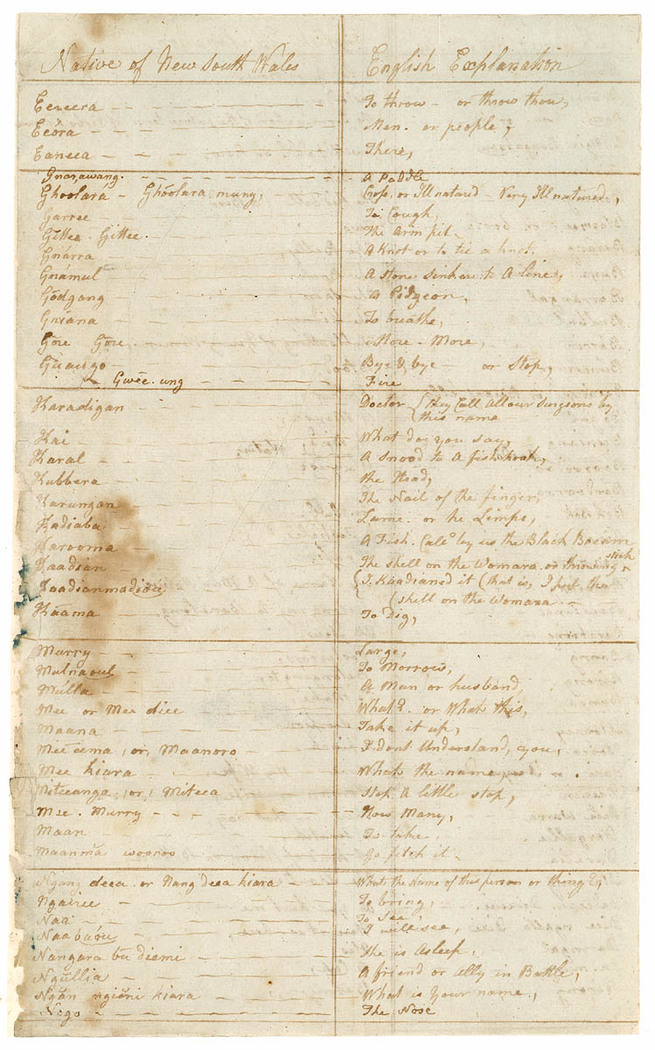 Native of New South Wales English Explanation
Eeneera To throw - or throw thou,
Eeōra Men. or people,
Eaneea There,
Gnarawang. A Paddle
Ghoolara - Ghōolara muny, Cross, or Illnatured - Very Ill natured,
Garree To Cough,
Gittee. Gittee. The Arm pit.
Gnārra A Knot or to tie a knot,
Gnamul A Stone Sinker to A Line,
Gōdgang A Pidgeon,
Gnīana To breathe,
Gōre Gōre More - More,
Gūaugō Bye & bye - or Stop,
Gwēē. ung Fire
Karadigan Doctor (they Call all our Surgeons by
this name
Kai What do you say,
Karal A Snood to A fish hook,
Kubbera the Head,
Karungan The Nail of the finger,
Kadiaba Lame. or he Limps,
Karooma A Fish. Calld by us the Black Bream
Kaadian The shell on the Womara or throwing stick
Kaadianmadiōu I Kaadianed it (that is, I put the
shell on the Womara
Kāama To Dig,
Murry Large,
Mulnaoul To Morrow,
Mulla A Man or husband,
Mee or Mee diee What? or What this,
Maana Take it up,
Mee ūina, or, Maanoro I Dont Understand, you,
Mee kiara Whats the name
Miteeanga, or, Miteea Stop A little stop,
Mee. Murry How Many,
Maan To take
Maanmā wooroo Go fetch it
Ngan, deea. or Nang deea kiara What the Name of this person or thing?,
Ngairee To bring,
Naa To See,
Naabāou I will see,
Nangara bu diemi She is Asleep,
Ngūllia A friend or Ally in Battle,
Ngān ngiēni kiara What is your name,
Nōgo The Nose